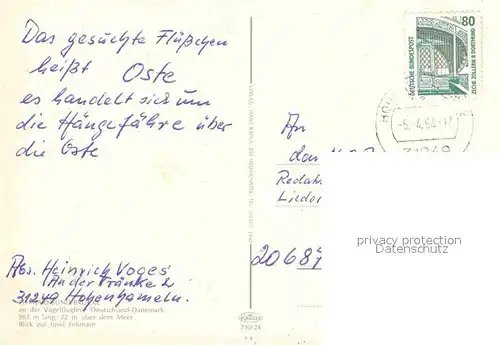 Das gesuchte Flüßchen
heißt Oste
es handelt sich um
die Hängefähre über
die Oste
Abs. Heinrich Voges
An der Tränke 2
31249 Hohenhameln.
an der Vogelfluglinie Deutschland-Dänemark
963 m lang, 22 m über dem Meer
Blick zur Insel Fehmarn
Krüger
730/24
80
DEUTSCHE BUNDESPOST
ZECHE ZOLLERN II DORTMUND
-5.4.94-17
31249
An
Redak
Lieder
20687
privacy protection
Datenschutz